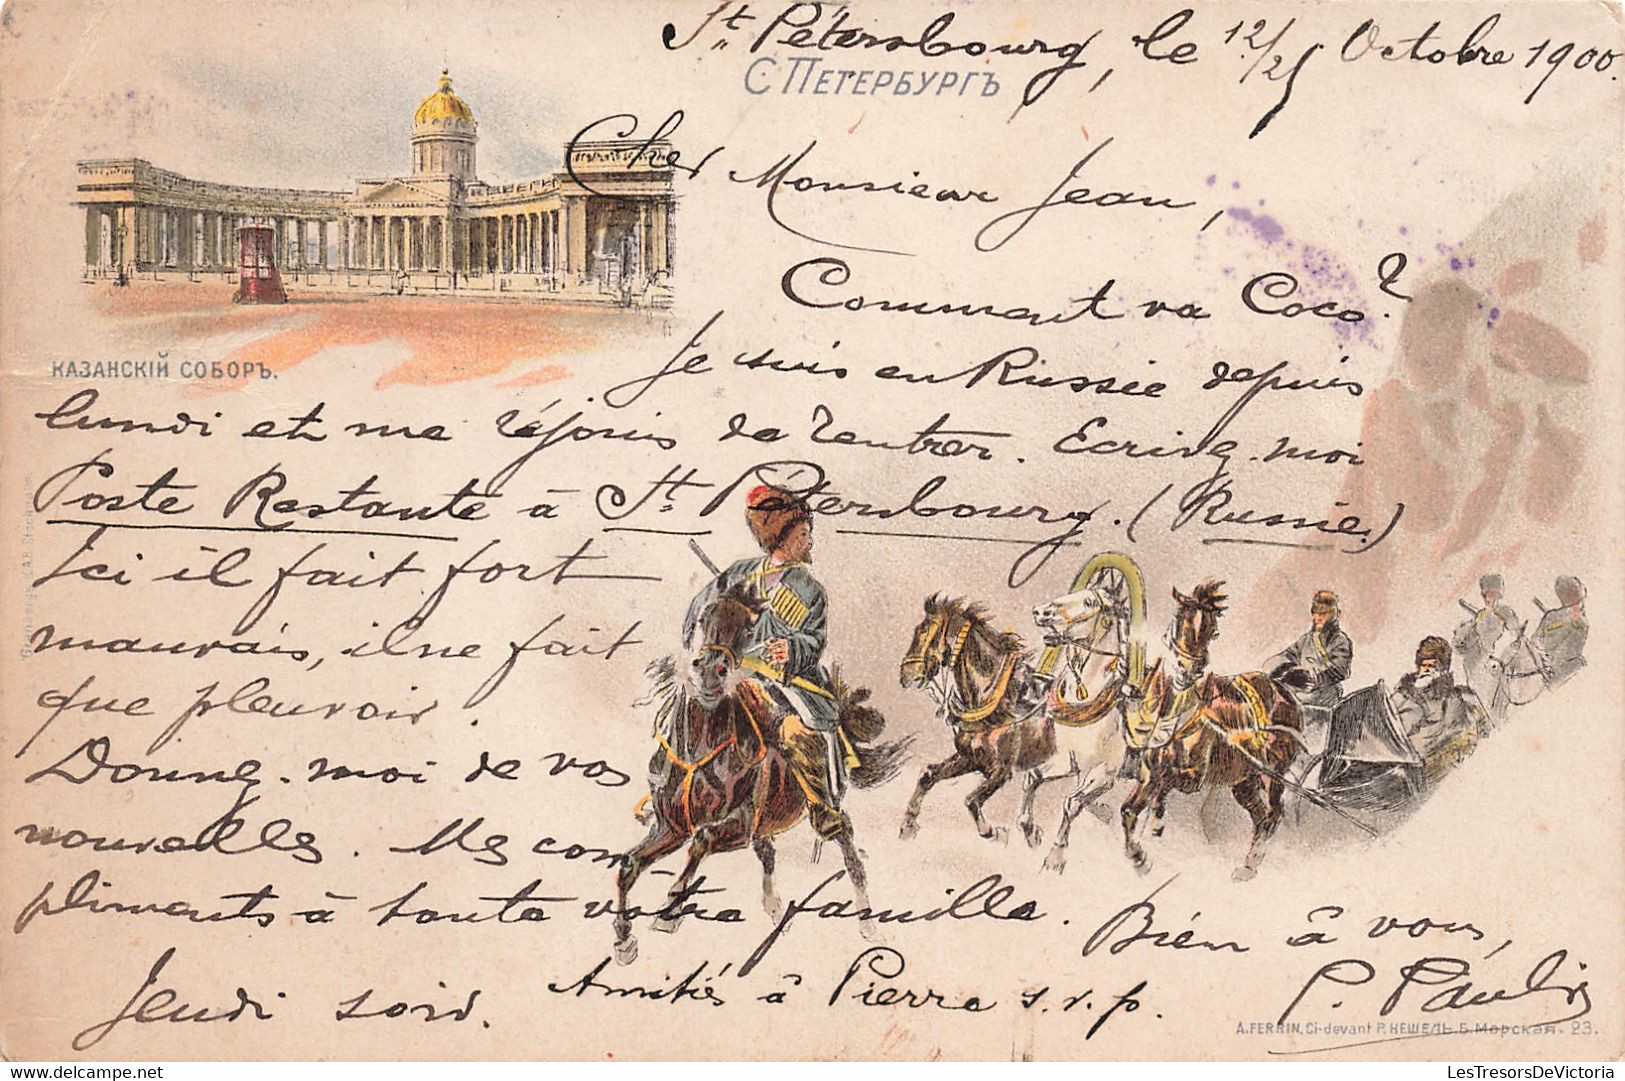 St Pétersbourg, le 12/25 Octobre 1900.
С ПЕТЕРБУРГЪ
Cher Monsieur Jean,
Comment va Coco?
КАЗАНСКІЙ СОБОРЪ.
Je suis en Russie depuis
lundi et me réjouis de rentrer. Ecrivez-moi
Poste Restante à St Pétersbourg. (Russie.)
Ici il fait fort
mauvais, il ne fait
que pleuvoir.
Donnez-moi de vos
nouvelles. Mes com-
pliments à toute vôtre famille. Bien à vous,
Jeudi soir. Amitiés à Pierre s.v.p. P. Paulis
A.FERRIN, Ci-devant Р. НЕШЕЛЬ. Б. Морская. 23.
LesTresorsDeVictoria